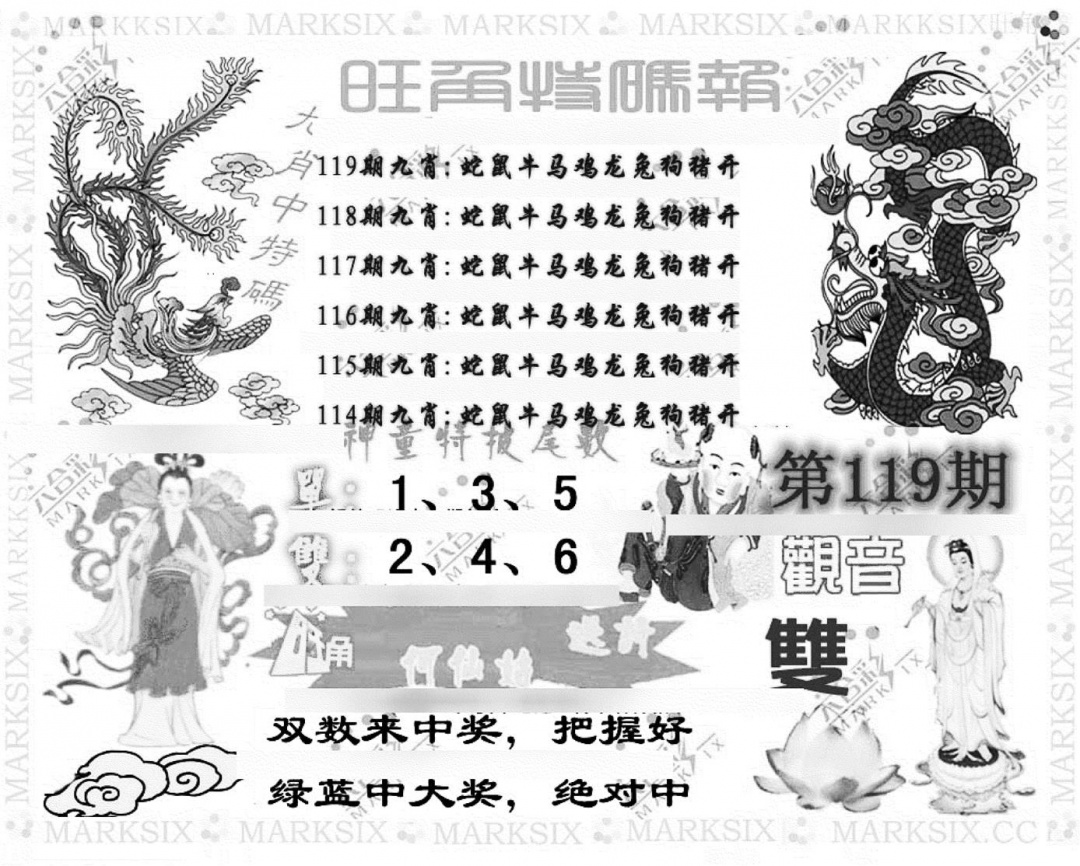 MARKSIX MARKSIX MARKSIX MARKSIX MARKKSIX
旺角特碼報
九肖中特碼
119期九肖：蛇鼠牛马鸡龙兔狗猪开
118期九肖：蛇鼠牛马鸡龙兔狗猪开
117期九肖：蛇鼠牛马鸡龙兔狗猪开
116期九肖：蛇鼠牛马鸡龙兔狗猪开
115期九肖：蛇鼠牛马鸡龙兔狗猪开
114期九肖：蛇鼠牛马鸡龙兔狗猪开
神童特报尾数
單：1、3、5
雙：2、4、6
第119期
觀音
雙
何仙姑
双数来中奖，把握好
绿蓝中大奖，绝对中
MARKSIX MARKSIX MARKSIX MARKSIX MARKSIX.CC